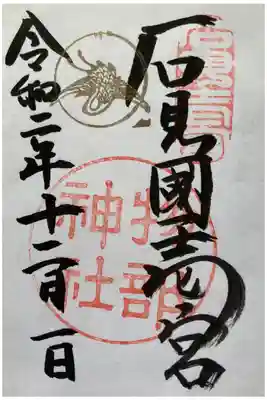 石見國壱宮
物部神社
令和二年十二月一日